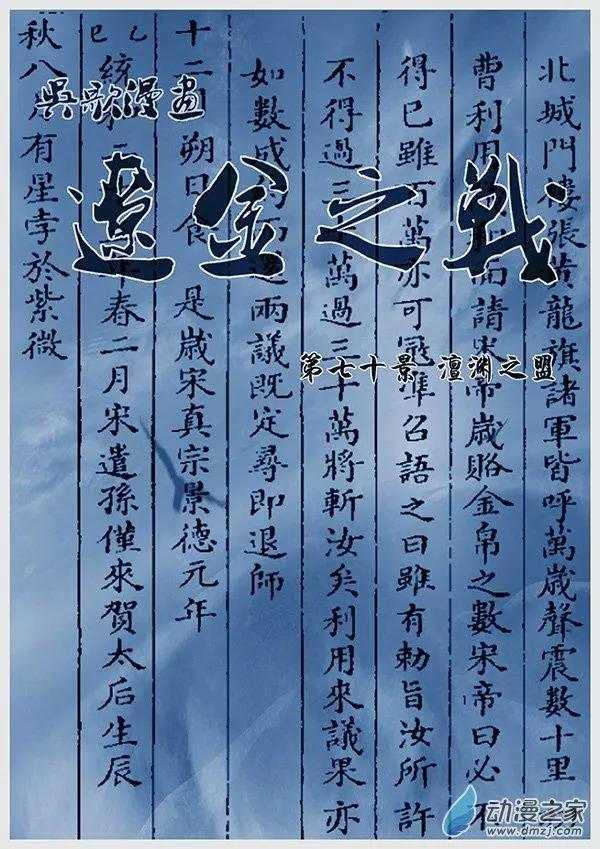 吳歌漫畫
遼金之戰
第七十景 澶淵之盟
北城門樓張黃龍旗諸軍皆呼萬歲聲震數十里
曹利用面請宋帝歲賂金帛之數宋帝曰必不
得已雖百萬亦可寇準召語之曰雖有勅旨汝所許
不得過三十萬過三十萬將斬汝矣利用來議果亦
如數成兩議既定尋即退師
十二月朔日食 是歲宋真宗景德元年
乙巳
統和年春二月宋遣孫僅來賀太后生辰
秋八月有星孛於紫微
动漫之家
www.dmzj.com